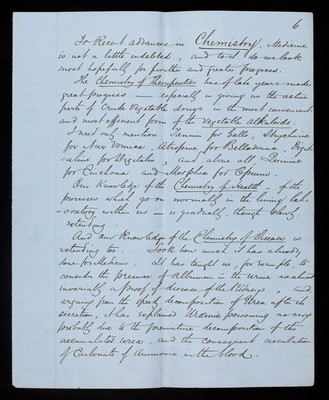 6
To Recent advances in Chemistry, Medicine
is not a little indebted, and to it do we look
most hopefully for further and greater progress.
The Chemistry of Therapeutics has of late years made
great progress – especially in giving us the active
parts of Crude Vegetable drugs in the most convenient
and most efficient form of the Vegetable Alkaloids.
I need only mention Tannin for Galls, Strychnine
for Nux Vomica, Atropine for Belladonna, Digit
-aline for Digitalis, and above all Quinine
for Cinchona and Morphia for Opium.
Our Knowledge of the Chemistry of Health – of the
processes which go on normally in the living lab-
-oratory within us – is gradually, though slowly
extending.
And our Knowledge of the Chemistry of Disease is
extending too. Look how much it has already
done for Medicine. It has taught us, for example, to
consider the presence of Albumen in the Urine no almost
invariably a proof of disease of the Kidneys, and,
arguing from the speedy decomposition of Urea after its
secretion, it has explained Uraemic poisoning as very
probably due to the premature decomposition of the
accumulated urea, and the consequent circulation
of Carbonate of Ammonia in the blood.